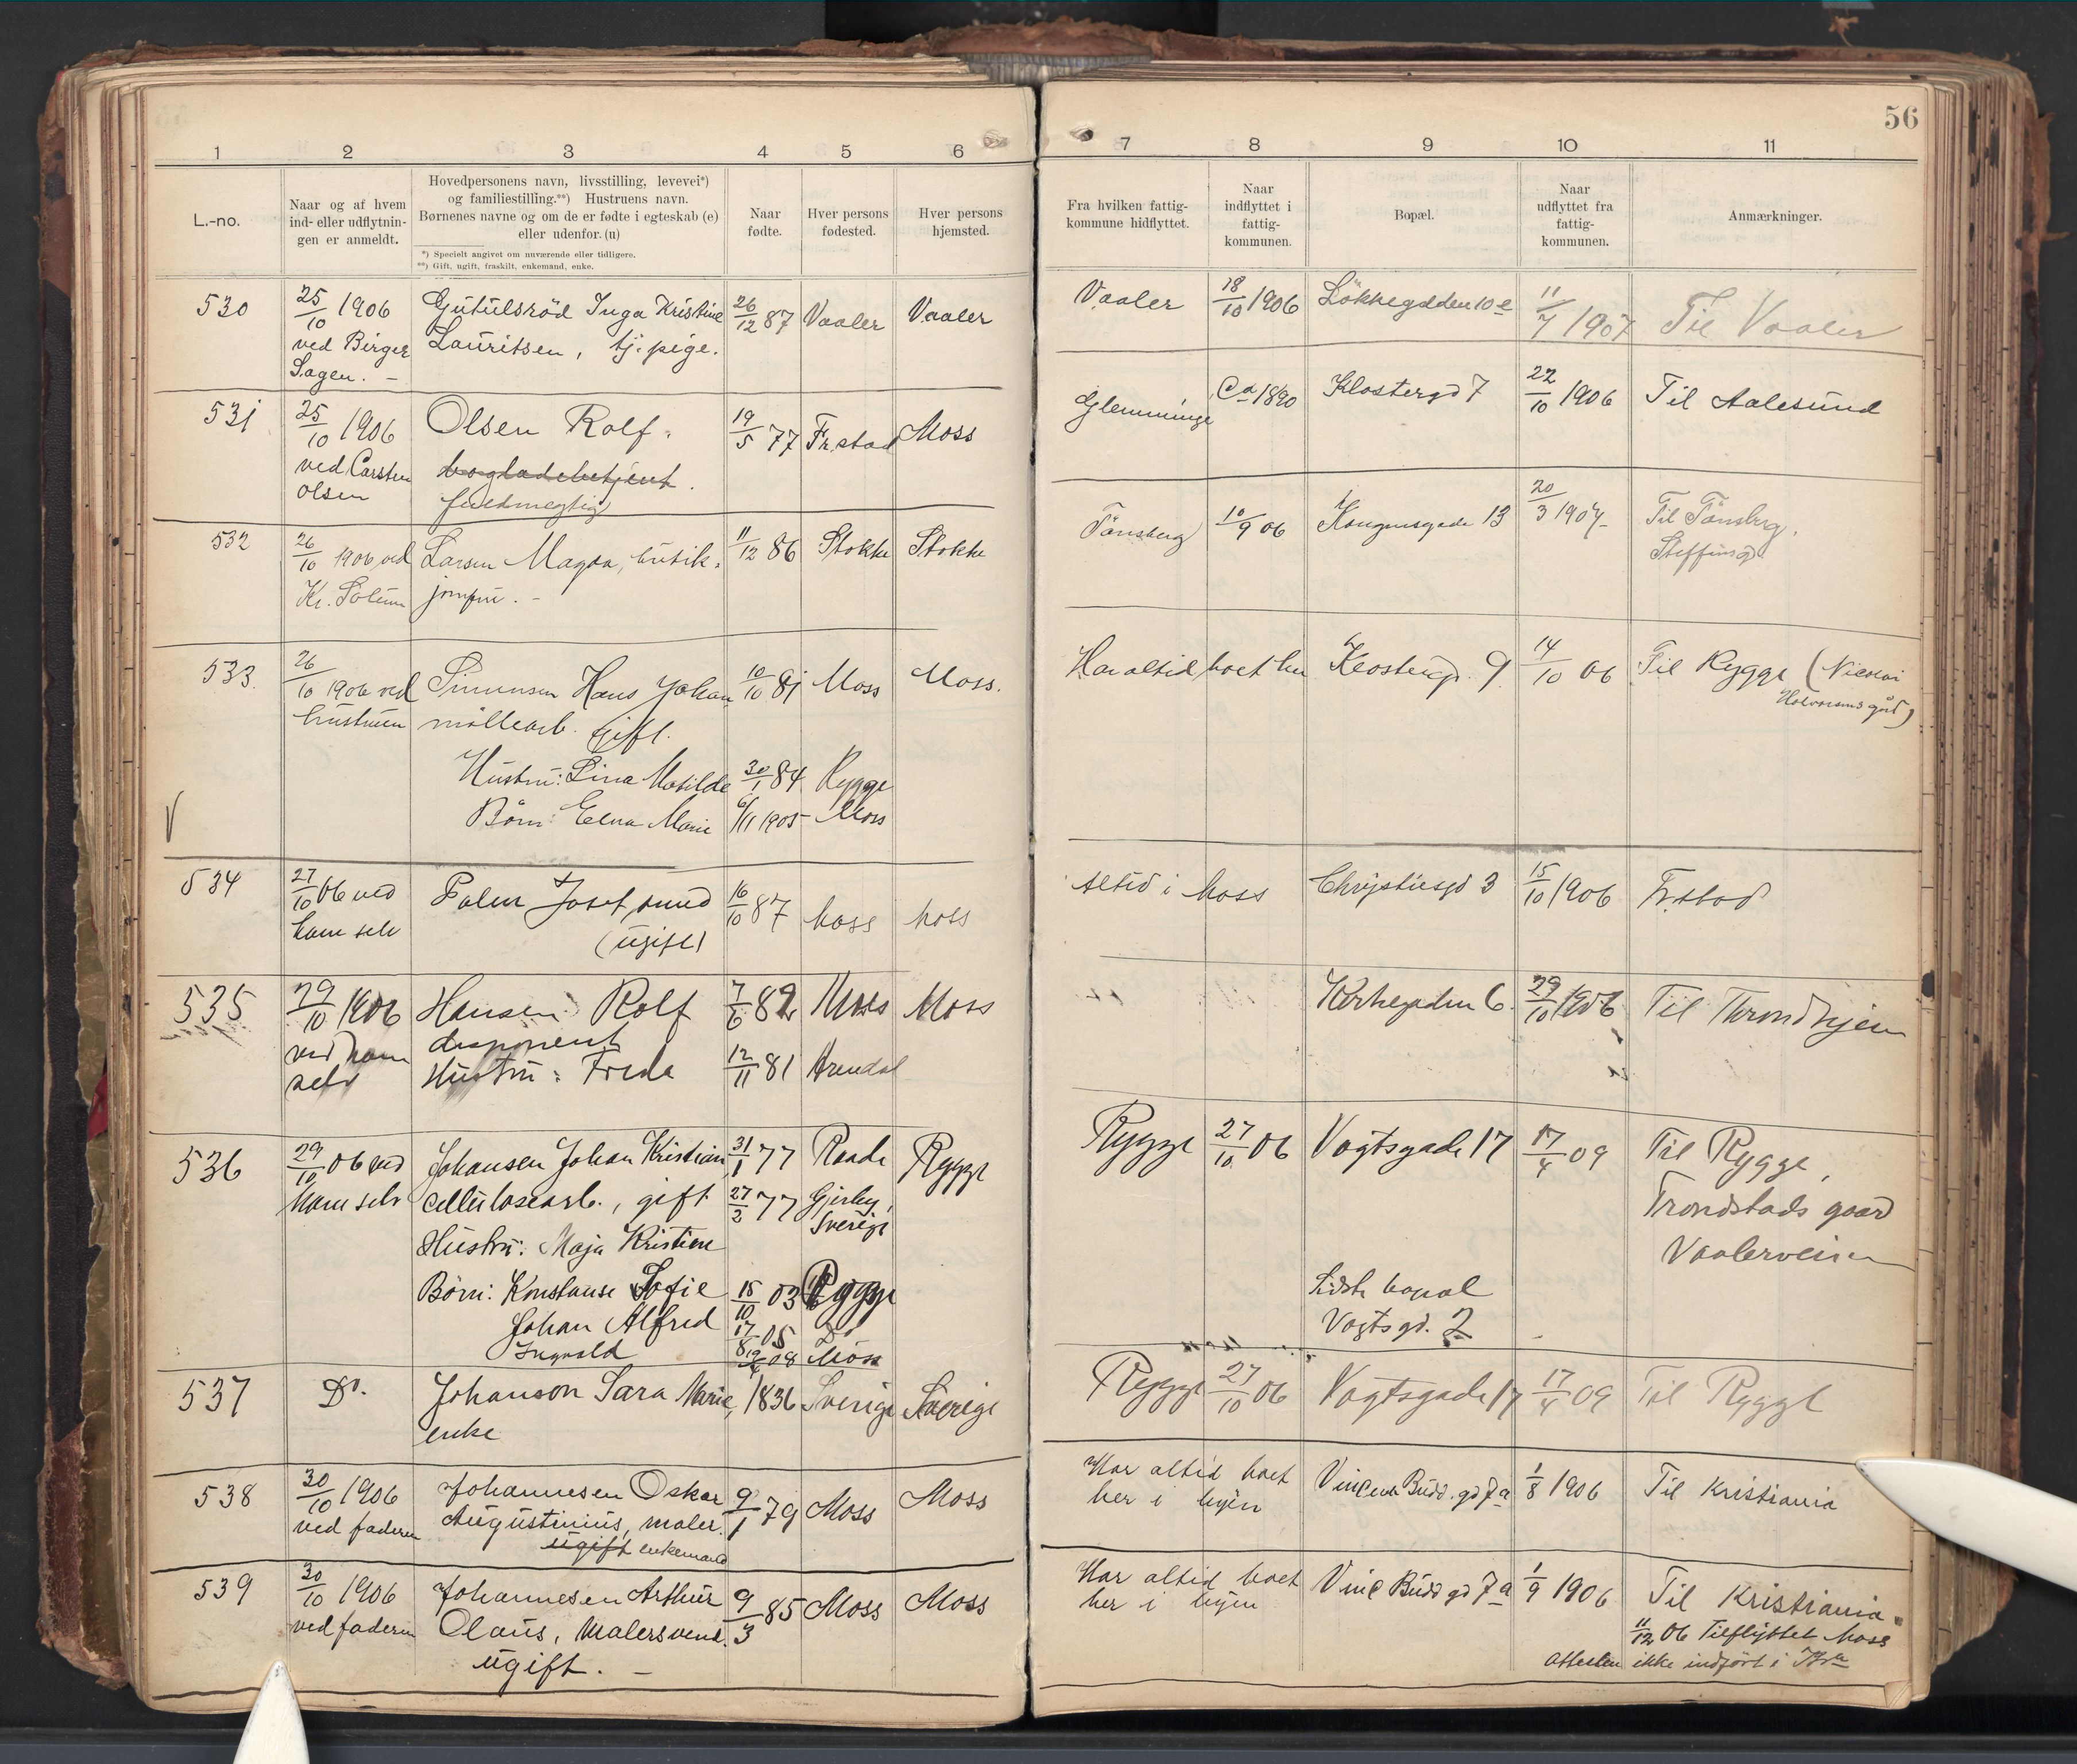 56
1 2 3 4 5 6 7 8 9 10 11
L.-no.
Naar og af hvem
ind- eller udflytnin-
gen er anmeldt.
Hovedpersonens navn, livsstilling, levevei*)
og familiestilling.**) Hustruens navn.
Børnenes navne og om de er fødte i egteskab (e)
eller udenfor. (u)
*) Specielt angivet om nuværende eller tidligere.
**) Gift, ugift, fraskilt, enkemand, enke.
Naar
fødte.
Hver persons
fødested.
Hver persons
hjemsted.
Fra hvilken fattig-
kommune hidflyttet.
Naar
indflyttet i
fattig-
kommunen.
Bopæl.
Naar
udflyttet fra
fattig-
kommunen.
Anmærkninger.
530 25/10 1906 Gutulsröd Inga Kristine 26/12 87 Vaaler Vaaler Vaaler 18/10 1906 Lökkegaden 10 e 11/7 1907 Til Vaaler
ved Birger Lauritsen, tj. pige.
Sagen. –
531 25/10 1906 Olsen Rolf. 19/5 77 Fr.stad Moss Glemminge Ca 1890 Klostergd 7 22/10 1906 Til Aalesund
ved Carsten bogladebetjent.
Olsen fuldmegtig
532 26/10 1906 ved Larsen Magda, butik- 11/12 86 Stokke Stokke Tönsberg 10/9 06 Kongensgade 13 20/3 1907 Til Tönsberg.
Kr. Solum jomfru. – Steffensgd
533 26/10 1906 ved Simensen Hans Johan 10/10 81 Moss Moss. Har altid boet her Klostergd. 9 14/10 06 Til Rygge (Nicolai
hustruen möllearb. gift. gård)
Hustru: Lina Matilde 30/1 84 Rygge
V Börn: Elna Marie 6/11 1905 Moss
534 27/10 06 ved Palm Josef, smed 16/10 87 Moss Moss Altid i Moss Chrystiesgd 3 15/10 1906 Fr.stad
ham selv (ugift)
535 29/10 1906 Hansen Rolf 7/6 82 Moss Moss Kirkegaden 6. 29/10 1906 Til Throndhjem
ved ham disponent
selv Hustru: Freda 12/11 81 Arendal
536 29/10 06 ved Johansen Johan Kristian 31/1 77 Raade Rygge Rygge 27/10 06 Vogtsgade 17 17/4 09 Til Rygge,
ham selv cellulosearb., gift 27/2 77 Gjesby, Trondstads gaard
Sverige
Hustru: Maja Kristine Vaalerveien
Börn: Konstanse Sofie 15/10 03 Rygge Sidste bopæl
Johan Alfred 17/8 05 Do Vogtsgd. 2
Ingvald 08 Moss
537 Do. Johanson Sara Marie, 1836 Sverige Sverige Rygge 27/10 06 Vogtsgade 17 17/4 09 Til Rygge
enke
538 30/10 1906 Johannesen Oskar 9/1 79 Moss Moss Har altid boet Vincent Budd. gd 7 a 1/8 1906 Til Kristiania
ved faderen Augustinius, maler. her i byen
ugift enkemand
539 30/10 1906 Johannesen Arthur 9/3 85 Moss Moss Har altid boet Vinc Budd gd 7 a 1/9 1906 Til Kristiania
ved faderen Olaus, Malersvend. her i byen
ugift. –
11/12 06 Tilflyttet Moss
Attesten ikke indfört i Kra